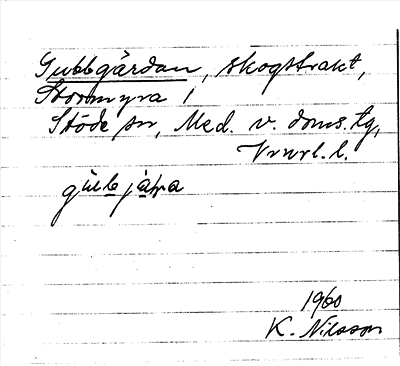 Gubbgärdan, skogstrakt,
Stormyra 1
Stöde sn, Med. v. doms. tg,
Vnrl. l.
gubbjäḷa
1960
K. Nilsson